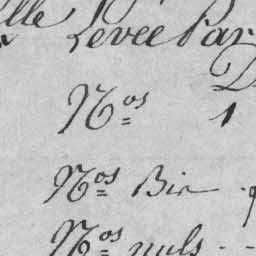 lle Levée Par
Nos 1
Nos Bis
Nos nuls